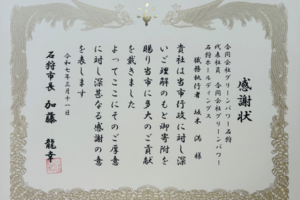 感謝状
合同会社グリーンパワー石狩
代表社員 合同会社グリーンパワー
石狩ホールディングス
職務執行者 坂本 満 様
貴社は当市行政に対し深
いご理解のもと御寄附を
賜り当市に多大のご貢献
を戴きました
よってここにそのご厚意
に対し深甚なる感謝の意
を表します
令和七年三月十一日
石狩市長 加藤 龍幸